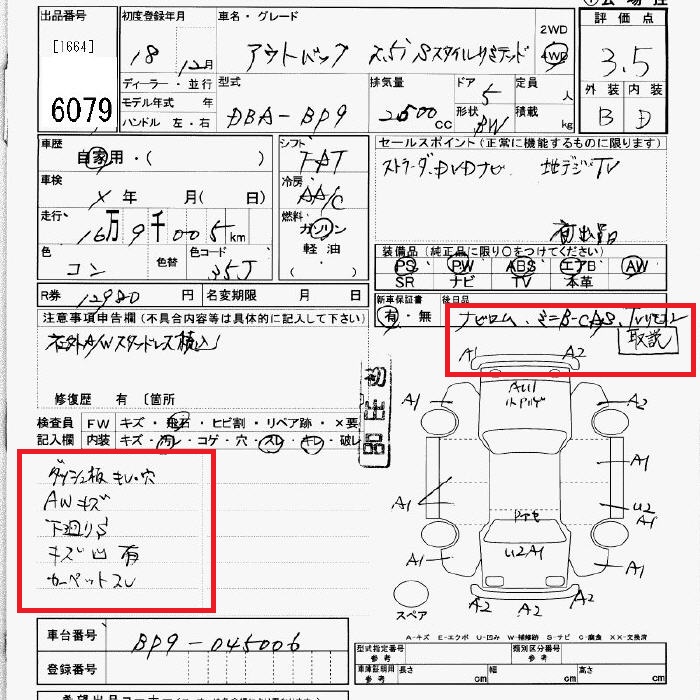 出品番号
[1664]
6079
初度登録年月
18年 12月
車名・グレード
アウトバック 2.5i Sスタイルリミテッド
2WD
4WD
評価点
3.5
外装 内装
B D
ディーラー・並行
モデル年式 年
ハンドル 左・右
型式
DBA-BP9
排気量
2500cc
ドア
5
形状
BW
定員
人
積載
kg
車歴
自家用・( )
シフト
車検
年 月( 日)
冷房
AA/C
走行
16万9千005km
燃料
ガソリン
軽油
色
コン
色替
色コード
35J
R券 12980円 名変期限 月 日
セールスポイント(正常に機能するものに限ります)
ストラーダ.DVDナビ 地デジTV
装備品(純正品に限り〇をつけてください)
PS PW ABS エアB AW
SR ナビ TV 本革
新車保証書
有・無
後日品
ナビロム、ミニB-CAS、TVリモコン
取説
注意事項申告欄(不具合内容等は具体的に記入して下さい)
社外A/Wスタッドレス積込
修復歴 有 〔箇所
初出品
検査員記入欄
FW キズ・飛石・ヒビ割・リペア跡・×要
内装 キズ・汚レ・コゲ・穴・スレ・キレ・破レ
ダッシュ板キレ・穴
AWキズ
下廻りS
キズ凹有
カーペットスレ
A1 A2
AU1
A1 A1
A1
A1
U2
A1
U2A1
A1 A1
A2 A2 A2
スペア
A-キズ E-エクボ U-凹み W-補修跡 S-サビ C-腐食 XX-交換済
車台番号
BP9-045006
登録番号
型式指定番号
参考
類別区分番号
参考
車庫証明用
参考
長さ cm 幅 cm 高さ cm